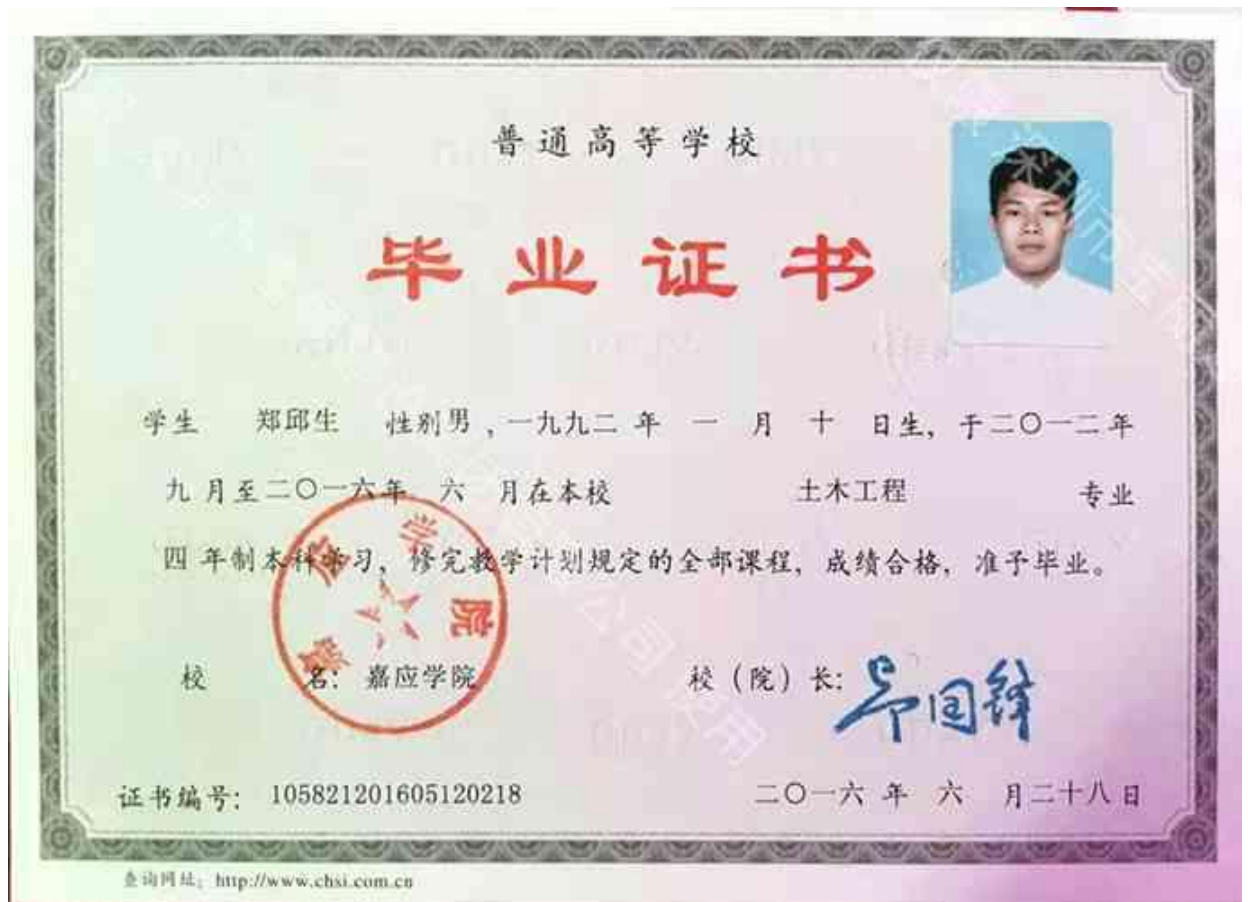 普通高等学校
毕业证书
学生 郑邱生 性别男，一九九二年 一 月 十 日生，于二〇一二年
九月至二〇一六年 六 月在本校 土木工程 专业
四年制本科学习，修完教学计划规定的全部课程，成绩合格，准予毕业。
校 名：嘉应学院 校（院）长：
证书编号：105821201605120218 二〇一六年 六 月二十八日
查询网址：http://www.chsi.com.cn